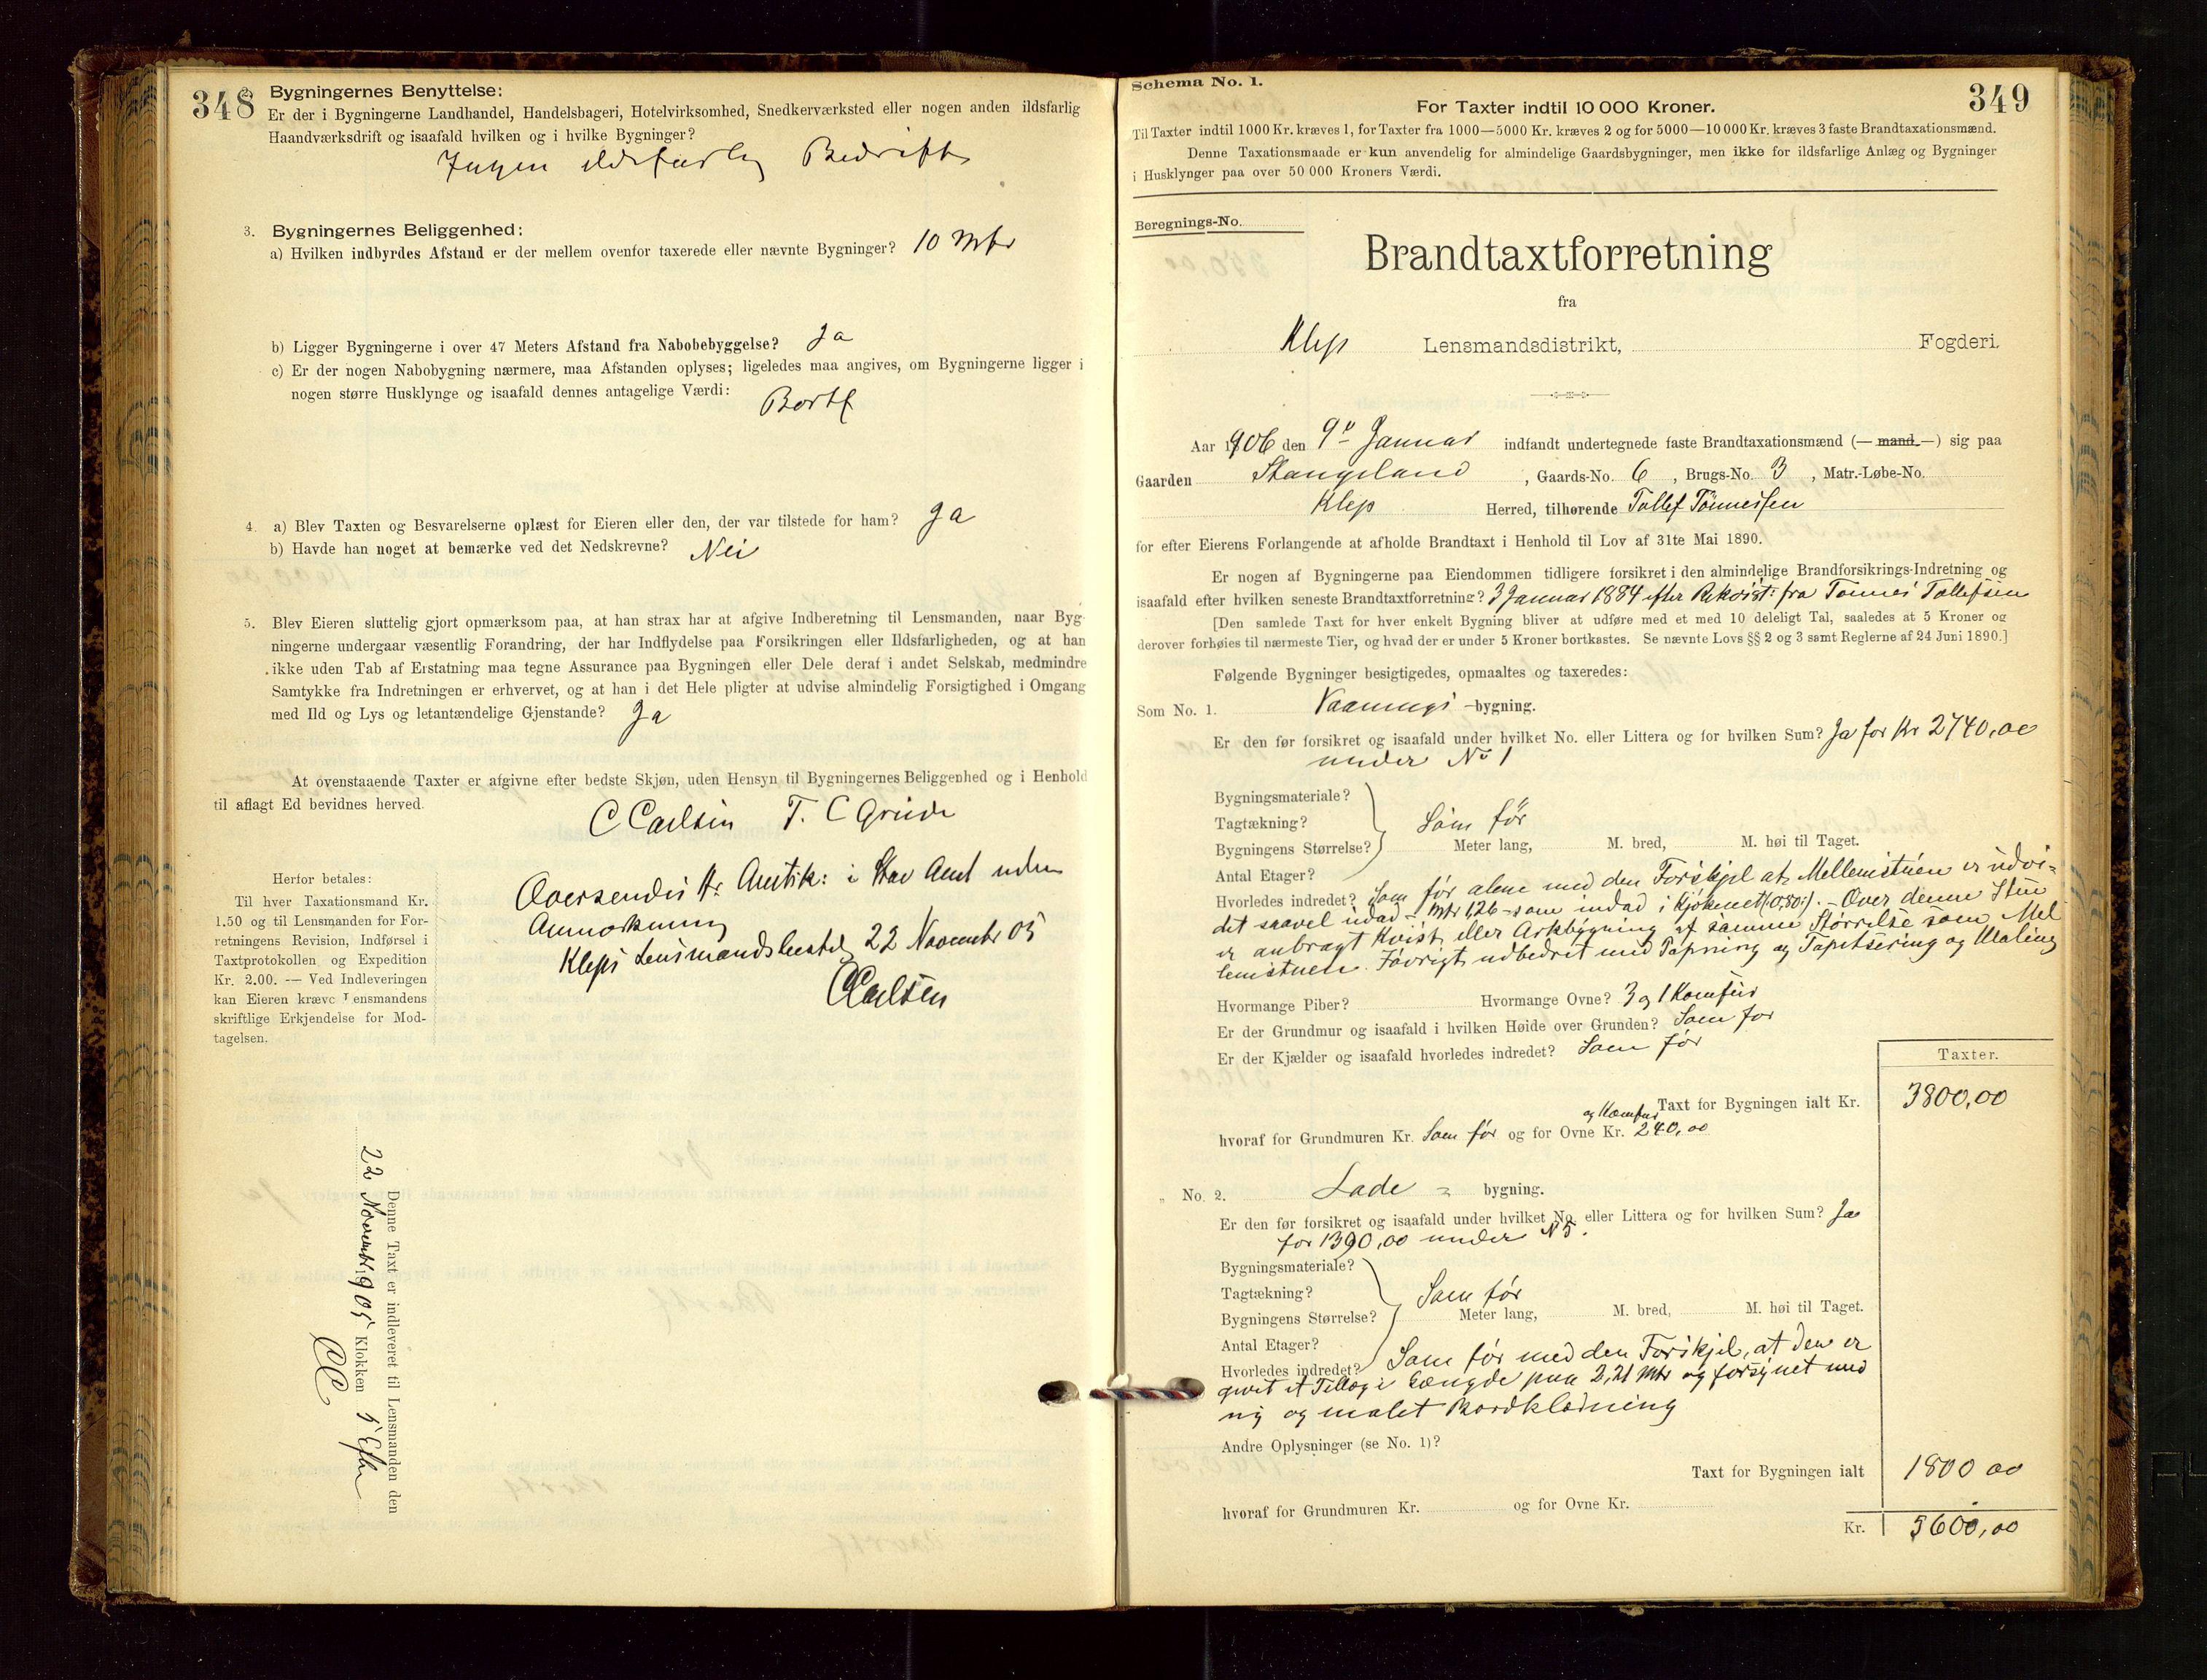 348
Bygningernes Benyttelse:
Er der i Bygningerne Landhandel, Handelsbageri, Hotelvirksomhed, Snedkerværksted eller nogen anden ildsfarlig
Haandværksdrift og isaafald hvilken og i hvilke Bygninger?
Ingen ildsfarlig Bedrift
3. Bygningernes Beliggenhed:
a) Hvilken indbyrdes Afstand er der mellem ovenfor taxerede eller nævnte Bygninger? 10 Mtr
b) Ligger Bygningerne i over 47 Meters Afstand fra Nabobebyggelse? Ja
c) Er der nogen Nabobygning nærmere, maa Afstanden oplyses; ligeledes maa angives, om Bygningerne ligger i
nogen større Husklynge og isaafald dennes antagelige Værdi: Bortf
4. a) Blev Taxten og Besvarelserne oplæst for Eieren eller den, der var tilstede for ham? Ja
b) Havde han noget at bemærke ved det Nedskrevne? Nei
5. Blev Eieren sluttelig gjort opmærksom paa, at han strax har at afgive Indberetning til Lensmanden, naar Byg-
ningerne undergaar væsentlig Forandring, der har Indflydelse paa Forsikringen eller Ildsfarligheden, og at han
ikke uden Tab af Erstatning maa tegne Assurance paa Bygningen eller Dele deraf i andet Selskab, medmindre
Samtykke fra Indretningen er erhvervet, og at han i det Hele pligter at udvise almindelig Forsigtighed i Omgang
med Ild og Lys og letantændelige Gjenstande? Ja
At ovenstaaende Taxter er afgivne efter bedste Skjøn, uden Hensyn til Bygningernes Beliggenhed og i Henhold
til aflagt Ed bevidnes herved.
C Carlsen T. C Grude
Oversendes Hr. Amtsk: i Stav Amt uden
Anmærkning
Kleps Lensmandsbestil 22 November 05
C Carlsen
Herfor betales:
Til hver Taxationsmand Kr.
1.50 og til Lensmanden for For-
retningens Revision, Indførsel i
Taxtprotokollen og Expedition
Kr. 2.00. — Ved Indleveringen
kan Eieren kræve Lensmandens
skriftlige Erkjendelse for Mod-
tagelsen.
Denne Taxt er indleveret til Lensmanden den
22 November 1905 Klokken 5 Efm
CC
Schema No. 1.
349
For Taxter indtil 10 000 Kroner.
Til Taxter indtil 1000 Kr. kræves 1, for Taxter fra 1000—5000 Kr. kræves 2 og for 5000—10 000 Kr. kræves 3 faste Brandtaxationsmænd.
Denne Taxationsmaade er kun anvendelig for almindelige Gaardsbygninger, men ikke for ildsfarlige Anlæg og Bygninger
i Husklynger paa over 50 000 Kroners Værdi.
Beregnings-No.
Brandtaxtforretning
fra
Klep Lensmandsdistrikt, Fogderi.
Aar 1906 den 9de Januar indfandt undertegnede faste Brandtaxationsmænd (— mand —) sig paa
Gaarden Stangeland, Gaards-No. 6, Brugs-No. 3, Matr.-Løbe-No.
Klep Herred, tilhørende Tollef Tönnessen
for efter Eierens Forlangende at afholde Brandtaxt i Henhold til Lov af 31te Mai 1890.
Er nogen af Bygningerne paa Eiendommen tidligere forsikret i den almindelige Brandforsikrings-Indretning og
isaafald efter hvilken seneste Brandtaxtforretning? 3 Januar 1884 efter Rekvist: fra Tönnes Tollefsen
[Den samlede Taxt for hver enkelt Bygning bliver at udføre med et med 10 deleligt Tal, saaledes at 5 Kroner og
derover forhøies til nærmeste Tier, og hvad der er under 5 Kroner bortkastes. Se nævnte Lovs §§ 2 og 3 samt Reglerne af 24 Juni 1890.]
Følgende Bygninger besigtigedes, opmaaltes og taxeredes:
Som No. 1. Vaanings -bygning.
Er den før forsikret og isaafald under hvilket No. eller Littera og for hvilken Sum? Ja for Kr 2740,00
under No 1
Bygningsmateriale?
Tagtækning? Som før
Bygningens Størrelse? Meter lang, M. bred, M. høi til Taget.
Antal Etager?
Hvorledes indredet? Som før alene med den Forskjel at Mellemstuen er udvi-
det saavel udad - Mtr 1,26 - som indad i Kjøkenet (:0,80:). - Over denne Stue
er anbragt Kvist eller Arkbygning af samme Størrelse som Mel
lemstuen. Føvrigt udbedret med Papning og Tapitsering og Maling
Hvormange Piber? Hvormange Ovne? 3 og 1 Komfür
Er der Grundmur og isaafald i hvilken Høide over Grunden? Som før
Er der Kjælder og isaafald hvorledes indredet? Som før
Taxter.
Taxt for Bygningen ialt Kr. 3800,00
og Komfür
hvoraf for Grundmuren Kr. Som før og for Ovne Kr. 240,00
„ No. 2. Lade = bygning.
Er den før forsikret og isaafald under hvilket No. eller Littera og for hvilken Sum? Ja
for 1390,00 under N 5.
Bygningsmateriale?
Tagtækning? Som før
Bygningens Størrelse? Meter lang, M. bred, M. høi til Taget.
Antal Etager?
Hvorledes indredet? Som før med den Forskjel, at den er
givet et Tillæg i Længde paa 2,21 Mtr og forsynet med
ny og malet Bordklædning
Andre Oplysninger (se No. 1)?
Taxt for Bygningen ialt 1800 00
hvoraf for Grundmuren Kr. og for Ovne Kr.
Kr. 5600,00